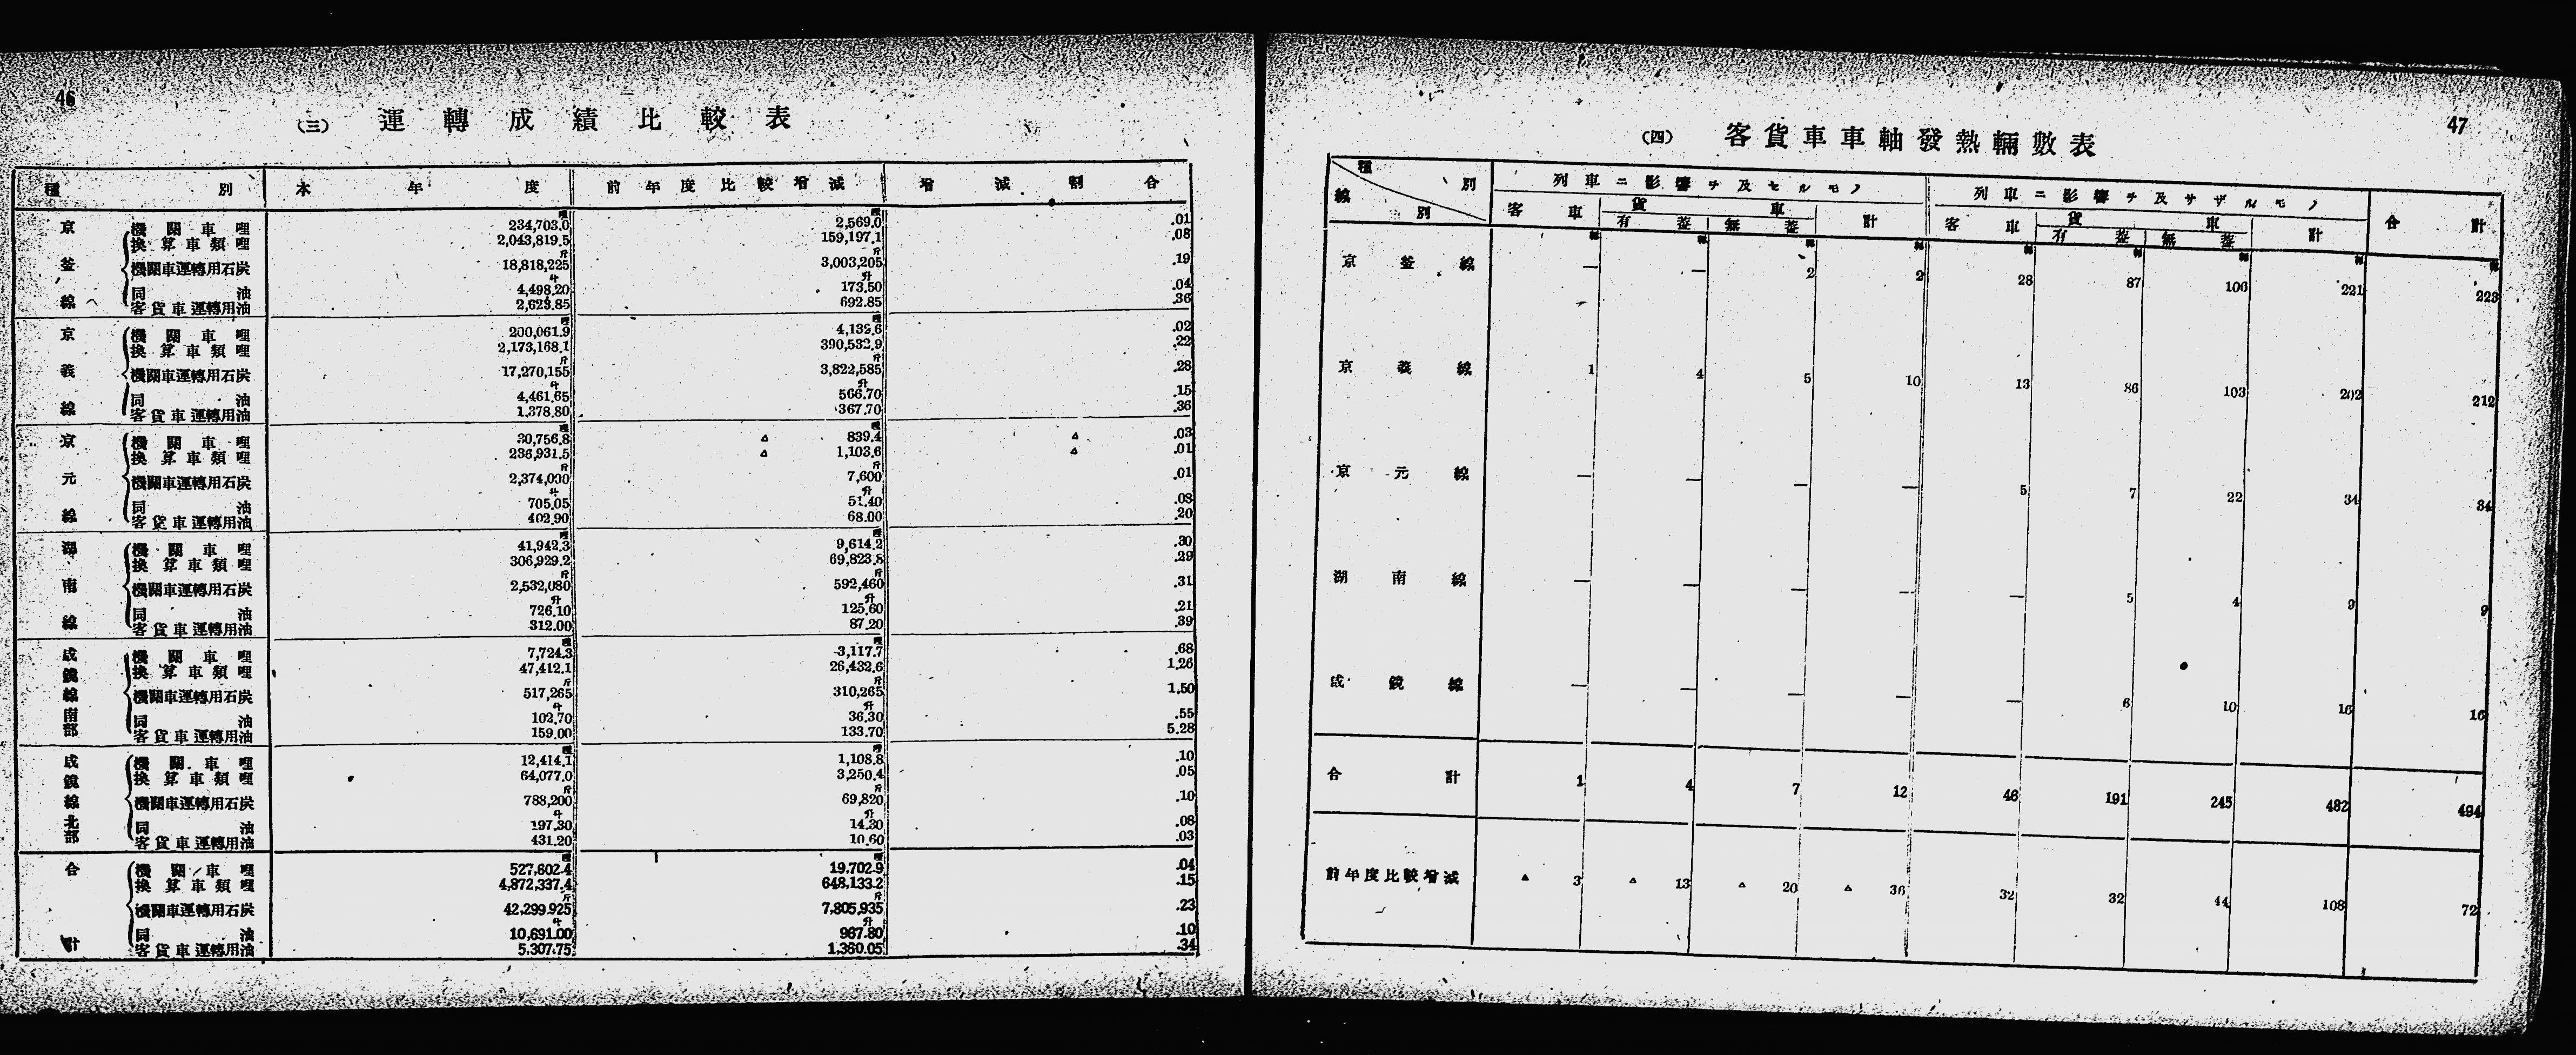 46
(三) 運轉成績比較表
種別 本年度 前年度比較增減 增減割合
京釜線
機關車哩 234,703.0 2,569.0 .01
換算車類哩 2,043,819.5 159,197.1 .08
機關車運轉用石炭 18,818,225 3,003,205 .19
同油 4,498.20 173.50 .04
客貨車運轉用油 2,623.85 692.85 .36
京義線
機關車哩 200,061.9 4,132.6 .02
換算車類哩 2,173,168.1 390,532.9 .22
機關車運轉用石炭 17,270,155 3,822,585 .28
同油 4,461.65 566.70 .15
客貨車運轉用油 1,378.80 367.70 .36
京元線
機關車哩 30,756.8 △ 839.4 △ .03
換算車類哩 236,931.5 △ 1,103.6 △ .01
機關車運轉用石炭 2,374,000 7,600 .01
同油 705.05 51.40 .08
客貨車運轉用油 402.90 68.00 .20
湖南線
機關車哩 41,942.3 9,614.2 .30
換算車類哩 306,929.2 69,823.8 .29
機關車運轉用石炭 2,532,080 592,460 .31
同油 726.10 125.60 .21
客貨車運轉用油 312.00 87.20 .39
咸鏡線南部
機關車哩 7,724.3 3,117.7 .68
換算車類哩 47,412.1 26,432.6 1.26
機關車運轉用石炭 517,265 310,265 1.50
同油 102.70 36.30 .55
客貨車運轉用油 159.00 133.70 5.28
咸鏡線北部
機關車哩 12,414.1 1,108.8 .10
換算車類哩 64,077.0 3,250.4 .05
機關車運轉用石炭 788,200 69,820 .10
同油 197.30 14.30 .08
客貨車運轉用油 431.20 10.60 .03
合計
機關車哩 527,602.4 19,702.9 .04
換算車類哩 4,872,337.4 648,133.2 .15
機關車運轉用石炭 42,299,925 7,805,935 .23
同油 10,691.00 967.80 .10
客貨車運轉用油 5,307.75 1,360.05 .34
47
(四) 客貨車車軸發熱輛數表
種別 線別 列車ニ影響ヲ及セルモノ 列車ニ影響ヲ及サザルモノ 合計
客車 貨車 計 客車 貨車 計
有蓋 無蓋 有蓋 無蓋
京釜線 — — 2 2 28 87 106 221 223
京義線 1 4 5 10 13 86 103 202 212
京元線 — — — — 5 7 22 34 34
湖南線 — — — — — 5 4 9 9
咸鏡線 — — — — — 6 10 16 16
合計 1 4 7 12 46 191 245 482 494
前年度比較增減 △ 3 △ 13 △ 20 △ 36 32 32 44 108 72